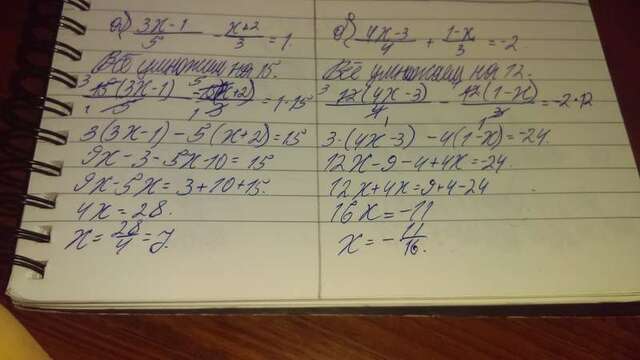 а) (3x-1)/5 - (x+2)/3 = 1.
Всё умножим на 15.
15(3x-1)/5 - 15(x+2)/3 = 1·15
3(3x-1)-5(x+2)=15
9x-3-5x-10=15
9x-5x=3+10+15.
4x=28.
x=28/4=7.
б) (4x-3)/4 + (1-x)/3 = -2
Всё умножаем на 12.
12(4x-3)/4 - 12(1-x)/3 = -2·12
3·(4x-3)-4(1-x)=-24.
12x-9-4+4x=24.
12x+4x=9+4-24
16x=-11
x=-11/16.